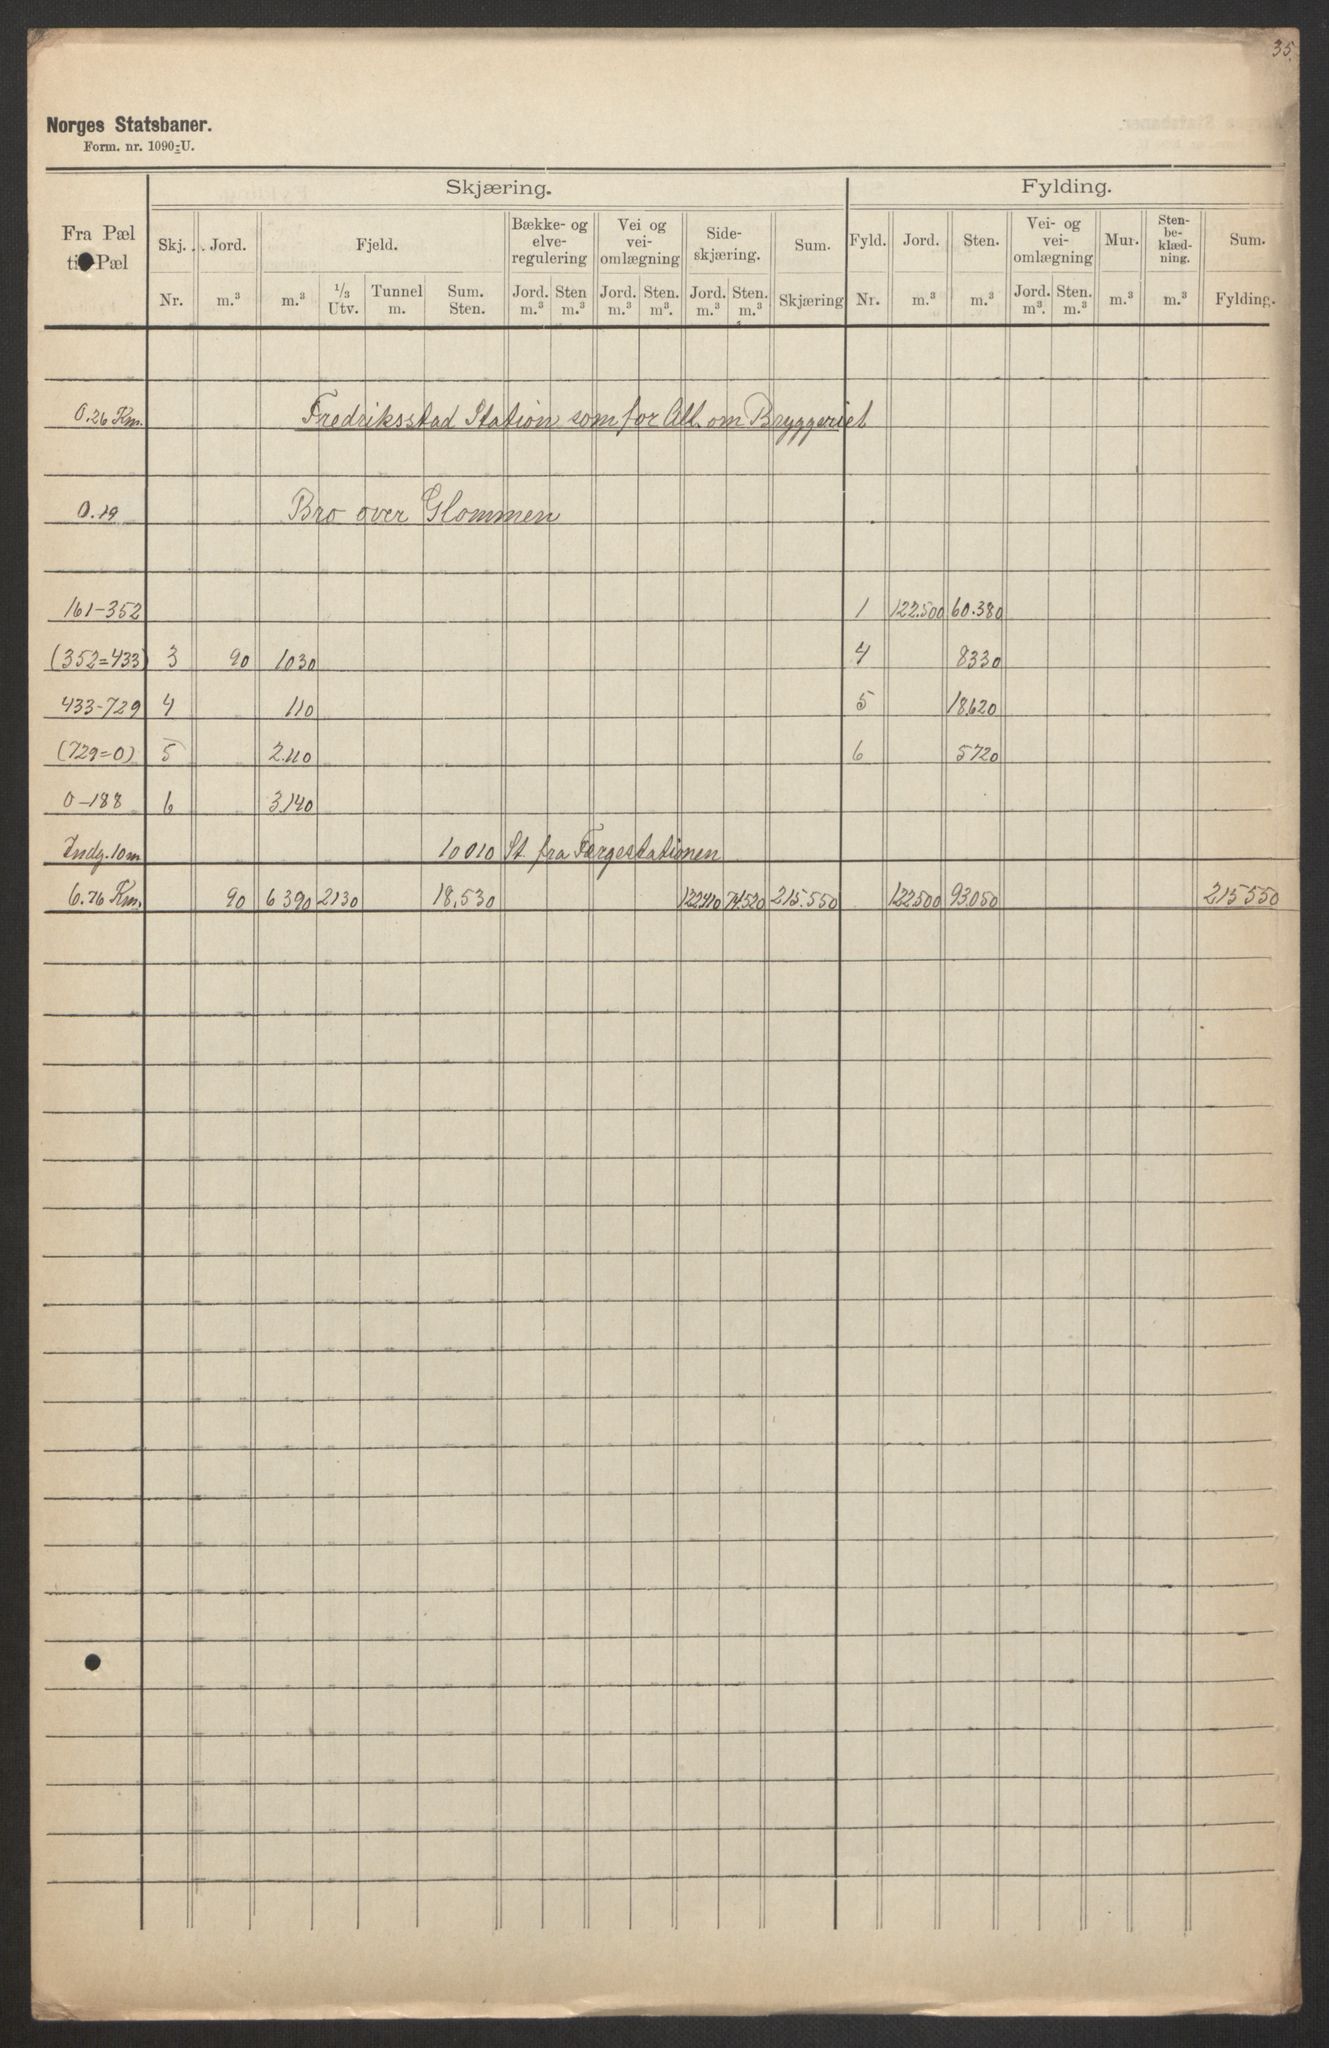 35.
Norges Statsbaner.
Form. nr. 1090-U.
Skjæring. Fylding.
Fra Pæl til Pæl Skj. Jord. Fjeld. Bække- og elve-regulering Vei og vei-omlægning Side-skjæring. Sum. Fyld. Jord. Sten. Vei- og vei-omlægning Mur. Sten-be-klæd-ning. Sum.
Nr. m.³ m.³ 1/3 Utv. Tunnel m. Sum. Sten. Jord. m.³ Sten m.³ Jord. m.³ Sten. m.³ Jord. m.³ Sten. m.³ Skjæring Nr. m.³ m.³ Jord. m³. Sten. m.³ m.³ m.³ Fylding.
0.26 Km. Fredriksstad Station som for Alt. om Bryggeriet
0.19 Bro over Glommen
161-352 1 122.500 60.380
(352=433) 3 90 1030 4 8330
433-729 4 110 5 18.620
(729=0) 5 2.110 6 5720
0-188 6 3.140
Indg. 10 m 10010 St. fra Færgestationen
6.76 Km. 90 6390 2130 18.530 122410 74.520 215.550 122500 93.050 215550